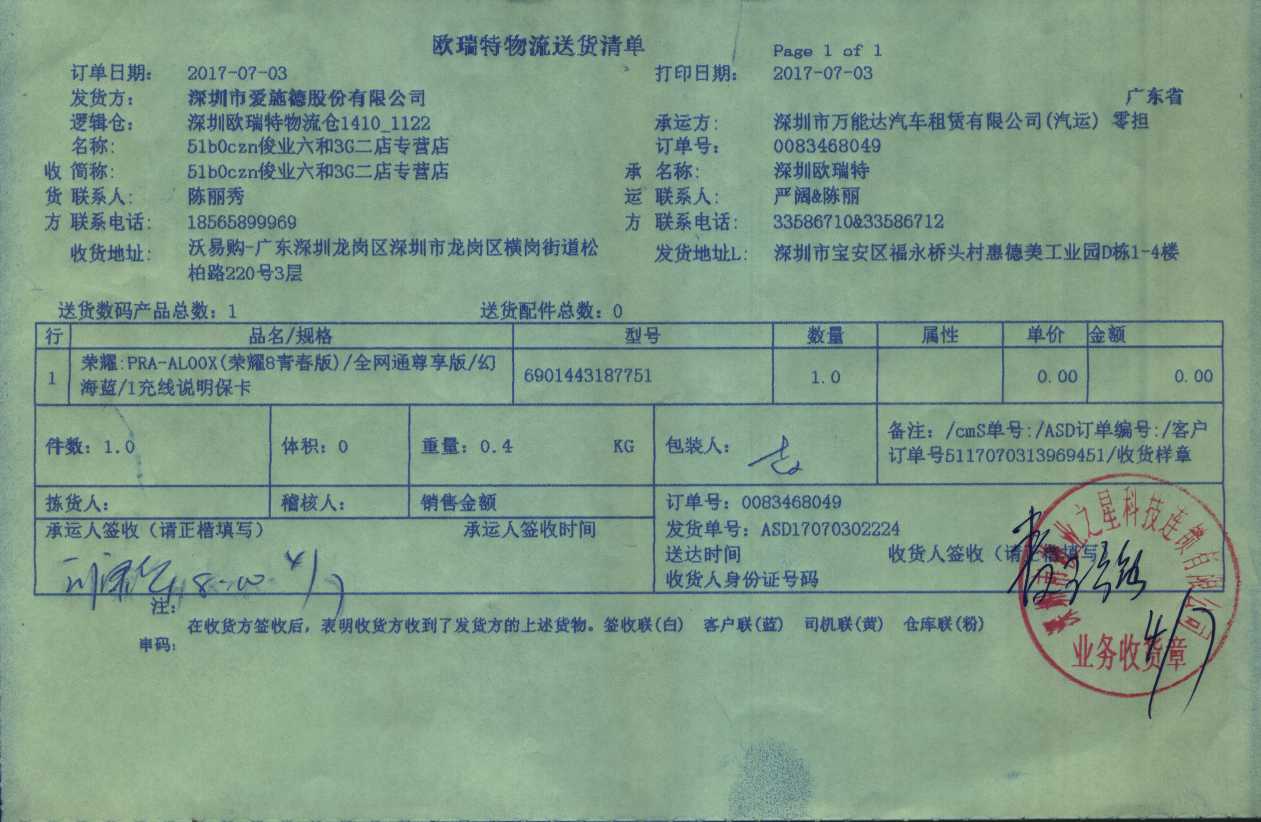 欧瑞特物流送货清单
Page 1 of 1
订单日期： 2017-07-03 打印日期： 2017-07-03
发货方： 深圳市爱施德股份有限公司 广东省
逻辑仓： 深圳欧瑞特物流仓1410_1122 承运方： 深圳市万能达汽车租赁有限公司(汽运) 零担
名称： 51b0czn俊业六和3G二店专营店 订单号： 0083468049
收 简称： 51b0czn俊业六和3G二店专营店 承 名称： 深圳欧瑞特
货 联系人： 陈丽秀 运 联系人： 严阔&陈丽
方 联系电话： 18565899969 方 联系电话： 33586710&33586712
收货地址： 沃易购-广东深圳龙岗区深圳市龙岗区横岗街道松 发货地址L: 深圳市宝安区福永桥头村惠德美工业园D栋1-4楼
柏路220号3层
送货数码产品总数：1 送货配件总数：0
行 品名/规格 型号 数量 属性 单价 金额
1 荣耀:PRA-AL00X(荣耀8青春版)/全网通尊享版/幻 6901443187751 1.0 0.00 0.00
海蓝/1充线说明保卡
件数：1.0 体积：0 重量：0.4 KG 包装人： 备注：/cmS单号:/ASD订单编号:/客户
订单号5117070313969451/收货样章
拣货人： 稽核人： 销售金额 订单号：0083468049
承运人签收（请正楷填写） 承运人签收时间 发货单号：ASD17070302224
送达时间 收货人签收（请正楷填写）
收货人身份证号码
8:00 4/7
注：
在收货方签收后，表明收货方收到了发货方的上述货物。签收联(白) 客户联(蓝) 司机联(黄) 仓库联(粉)
串码：
业之星科技连锁有限公司
业务收货章
4/7